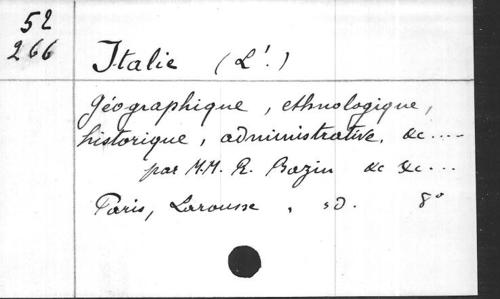 52
266
Italie (L'.)
Géographique, ethnologique,
historique, administrative, &c....
par M.M. R. Bazin &c &c...
Paris, Larousse, s.d. 8°